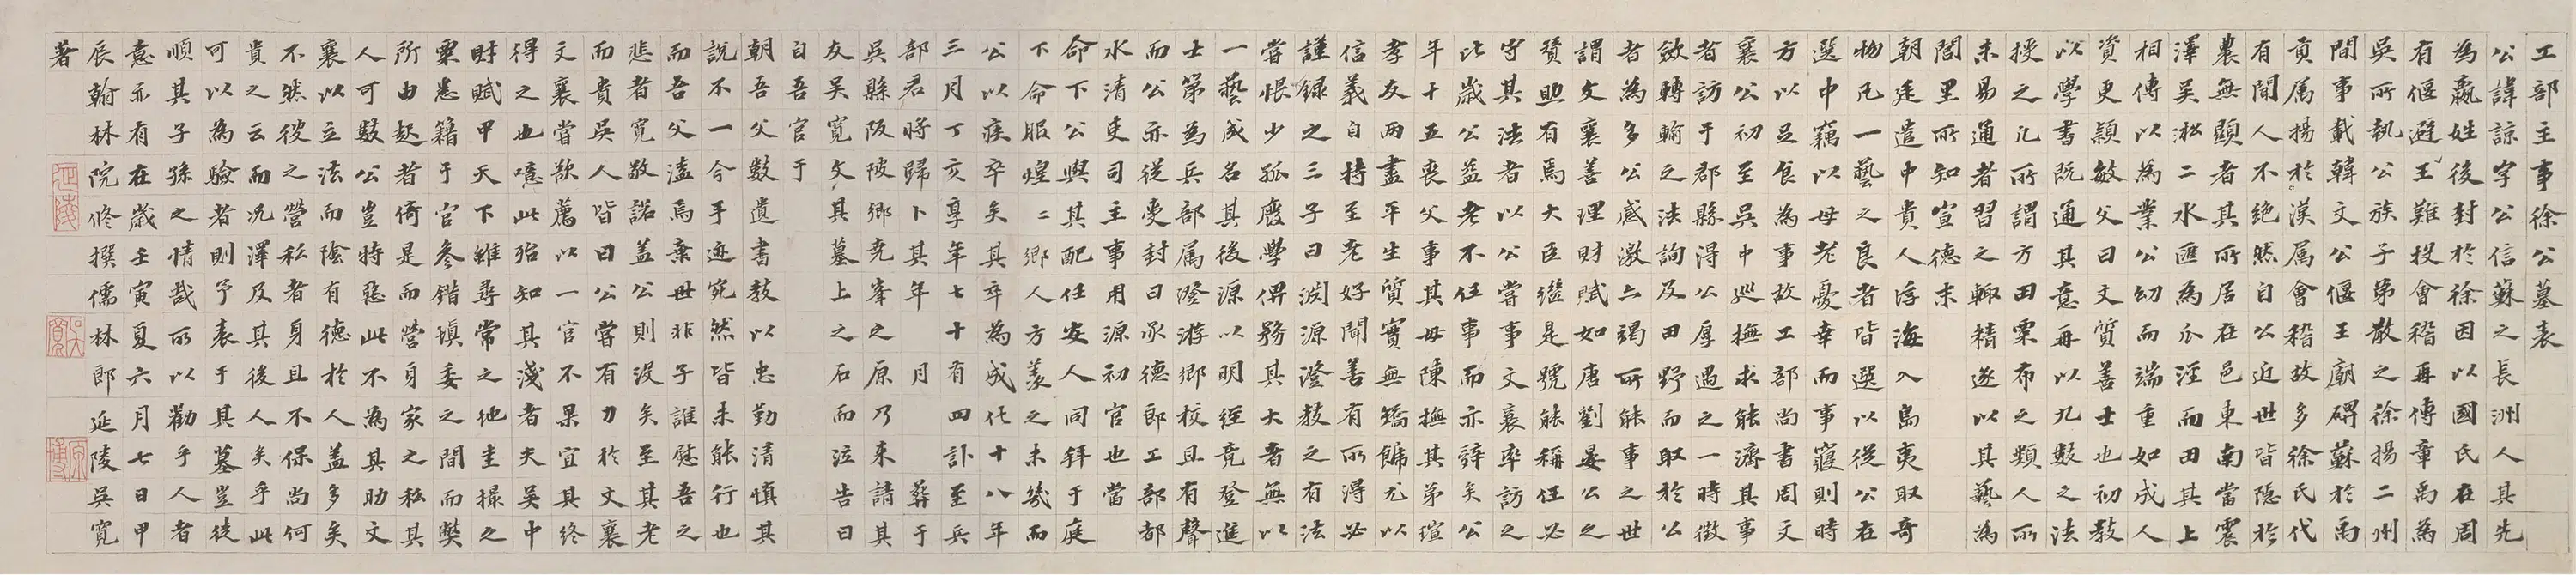 工部主事徐公墓表
公諱諒字公信蘇之長洲人其先
為嬴姓後封於徐因以國氏在周
有偃避王難投會稽再傳章禹為
吳所執公族子弟散之徐揚二州
間事載韓文公偃王廟碑蘇於禹
貢属揚於漢属會稽故多徐氏代
有聞人不絕然自公近世皆隱於
農無顯者其所居在邑東南當震
澤吳淞二水匯為瓜涇而田其上
相傳以為業公幼而端重如成人
資更穎敏父曰文質善士也初教
以學書既通其意再以九數之法
授之凡所謂方田粟布之類人所
未易通者習之輒精遂以其藝為
閭里所知宣德末
朝廷遣中貴人浮海入島夷取奇
物凡一藝之良者皆選以從公在
選中竊以母老憂幸而事寢則時
方以足食為事故工部尚書周文
襄公初至吳中巡撫求能濟其事
者訪于郡縣得公厚遇之一時徵
斂轉輸之法詢及田野而取於公
者為多公感激亦竭所能事之世
謂文襄善理財賦如唐劉晏公之
贊助有焉大臣繼是號能稱任必
守其法者以公嘗事文襄率訪之
比歲公益老不任事而亦辭矣公
年十五喪父事其母陳撫其弟瑄
孝友兩盡平生質實無矯飾尤以
信義自持至老好聞善有所得必
謹錄之三子曰淵源澄教之有法
嘗恨少孤廢學俾務其大者無以
一藝成名其後源以明經竟登進
士第為兵部属澄游鄉校且有聲
而公亦從受封曰承德郎工部都
水清吏司主事用源初官也當
命下公與其配任安人同拜于庭
下命服煌〻鄉人方羨之未幾而
公以疾卒矣其卒為成化十八年
三月丁亥享年七十有四訃至兵
部君將歸卜其年 月 葬于
吳縣阪陂鄉堯峯之原乃來請其
友吳寬文其墓上之石而泣告曰
自吾官于
朝吾父數遺書教以忠勤清慎其
說不一今手迹宛然皆未能行也
而吾父溘焉棄世非子誰慰吾之
悲者寬敬諾蓋公則没矣至其老
而貴吳人皆曰公嘗有力於文襄
文襄嘗欲薦以一官不果宜其終
得之也噫此殆知其淺者夫吳中
財賦甲天下雖尋常之地圭撮之
粟悉籍于官參錯填委之間而弊
所由起者倚是而營身家之私其
人可數公豈特惡此不為其助文
襄以立法而陰有德於人蓋多矣
不然彼之營私者身且不保尚何
貴之云而况澤及其後人矣乎此
可以為驗者則予表于其墓豈徒
順其子孫之情哉所以勸乎人者
意亦有在歲壬寅夏六月七日甲
辰翰林院修撰儒林郎延陵吳寬
著
延陵
吳寬
原博